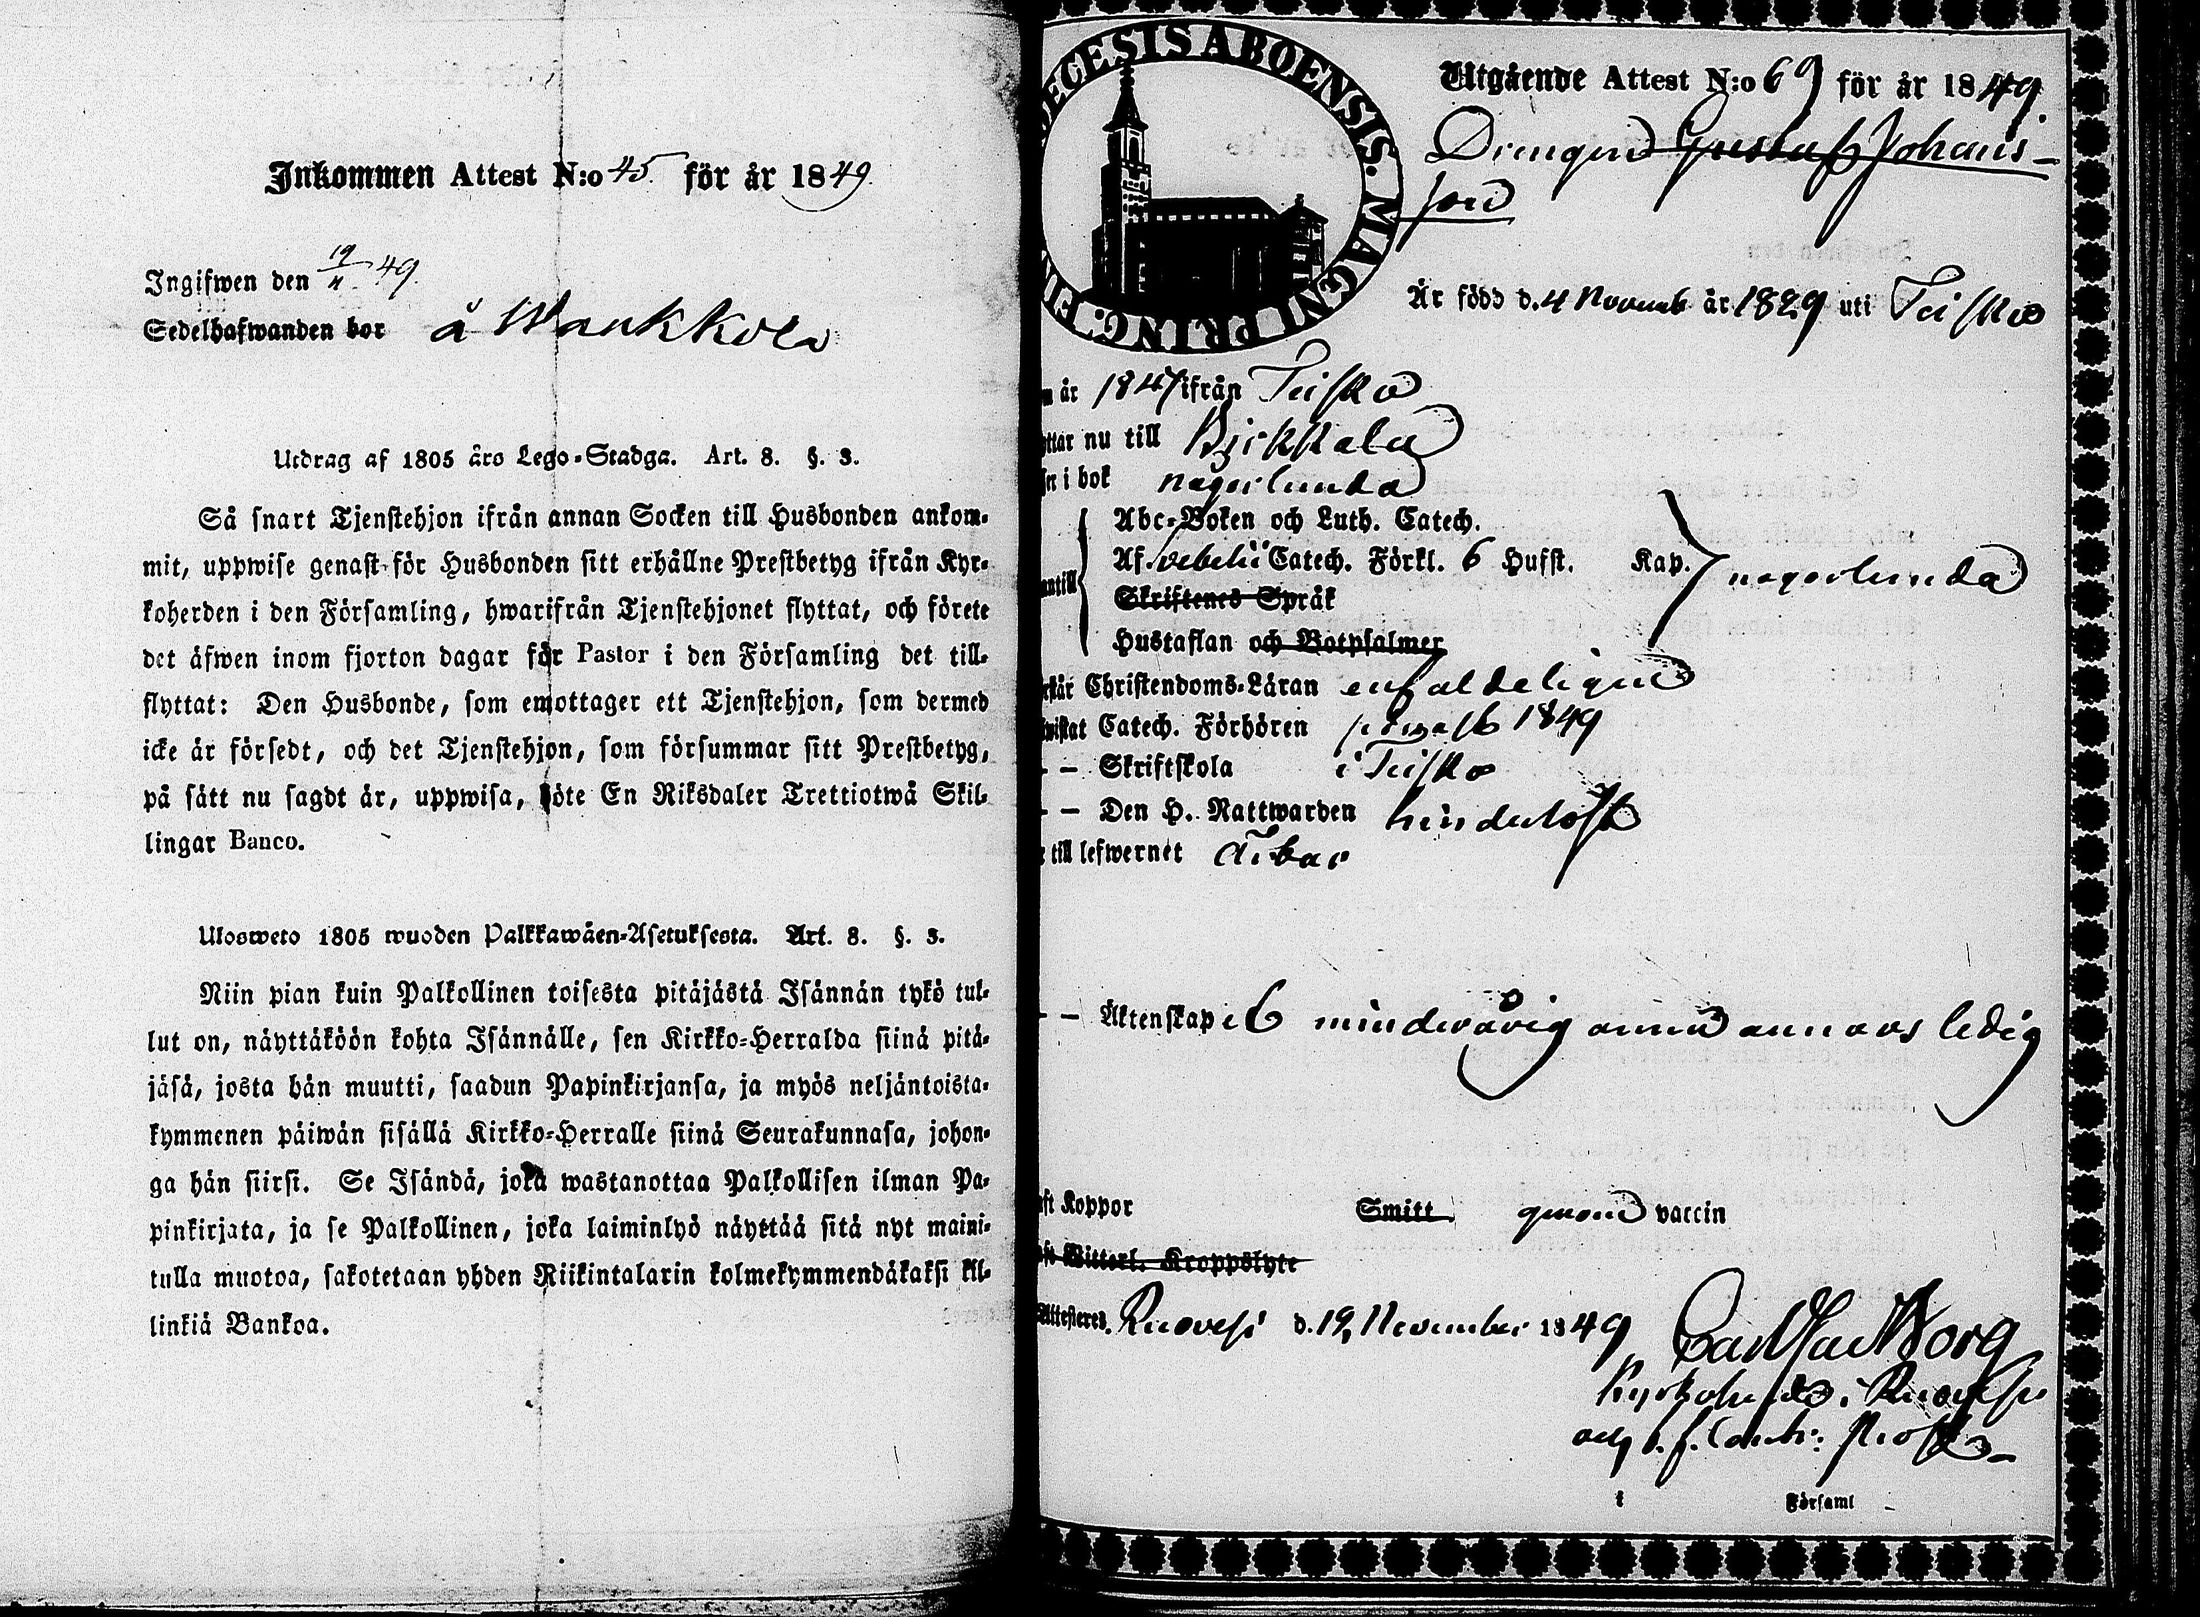 Inkommen Attest N:o 45 för år 1849.
Ingifwen den 19/11 49.
Sedelhafwanden bor å Wankkola
Utdrag af 1805 års Lego-Stadga. Art. 8. §. 3.
Så snart Tjenstehjon ifrån annan Socken till Husbonden ankom-
mit, uppwise genast för Husbonden sitt erhållne Prestbetyg ifrån Kyr-
koherden i den Församling, hwarifrån Tjenstehjonet flyttat, och förete
det äfwen inom fjorton dagar för Pastor i den Församling det till-
flyttat: Den Husbonde, som emottager ett Tjenstehjon, som dermed
icke är försedt, och det Tjenstehjon, som försummar sitt Prestbetyg,
på sätt nu sagdt är, uppwisa, böte En Riksdaler Trettiotwå Skil-
lingar Banco.
Ulosweto 1805 wuoden Palkkawäen-Asetuksesta. Art. 8. §. 3.
Niin pian kuin Palkollinen toisesta pitäjästä Isännän tykö tul-
lut on, näyttäköön kohta Isännälle, sen Kirkko-Herralda siinä pitä-
jäsä, josta hän muutti, saadun Papinkirjansa, ja myös neljäntoista-
kymmenen päiwän sisällä Kirkko-Herralle siinä Seurakunnasa, johon-
ga hän siirsi. Se Isändä, joka wastanottaa Palkollisen ilman Pa-
pinkirjata, ja se Palkollinen, joka laiminlyö näyttää sitä nyt maini-
tulla muotoa, sakotetaan yhden Riikintalarin kolmekymmendäkaksi kil-
linkiä Bankoa.
ECESIS ABOENSIS. MAGNI PRINC. FIN
Utgående Attest N:o 69 för år 1849.
Drengen Gustaf Johans-
son
Är född d. 4 Novemb år 1829 uti Teisko
m år 1847 ifrån Teisko
yttar nu till Birkkala
ser i bok någorlunda
Abc-Boken och Luth. Catech.
Af. vebelii Catech. Förkl. 6 Hufst. Kap. någorlunda
antill
Skriftenes Språk
Hustaflan och Botpsalmer
rstår Christendoms-Läran enfaldeligen
wistat Catech. Förhören sednast 1849
– – Skriftskola i Teisko
– – Den H. Nattwarden hinderlöst
e till lefwernet ärbar
– – Äktenskap e 6 minderårig annars ledig
aft Koppor Smitt. genom vaccin
aft Witterl. Kroppslyte
Attesteres. Ruovesi d. 12, November 1849 Carl Gust Borg
Kyrkoherde i Ruovesi
och t. f. Contr: Prost
i Församl